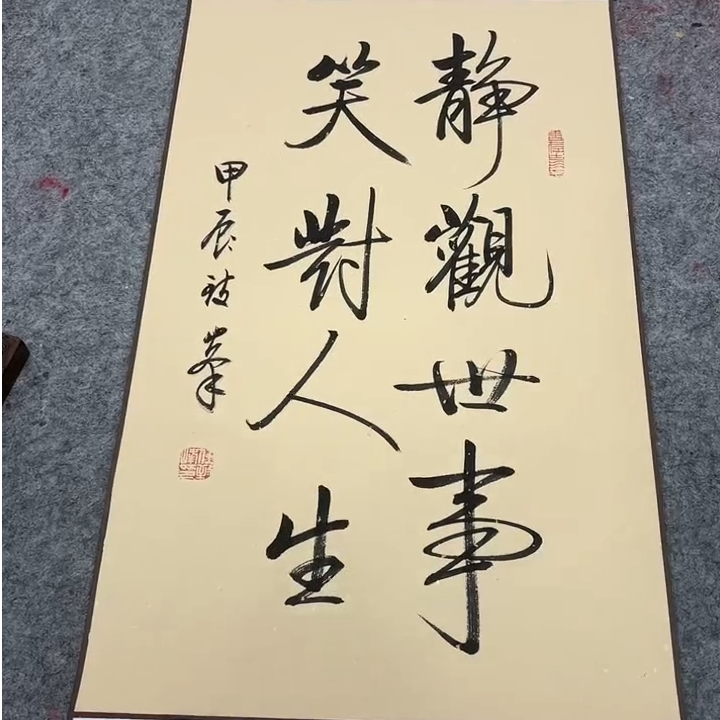 靜觀世事
笑對人生
甲辰玹峯